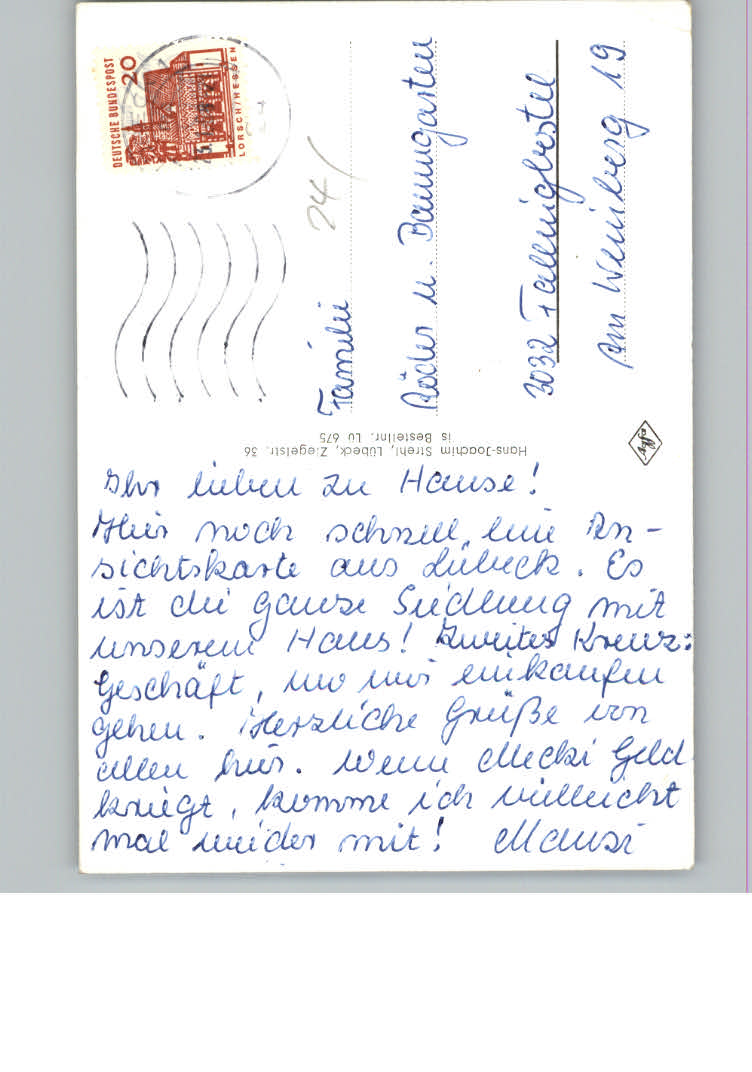 Ihr lieben zu Hause!
Hier noch schnell eine An-
sichtskarte aus Lübeck. Es
ist die ganze Siedlung mit
unserem Haus! Zweites Kreuz:
Geschäft, wo wir einkaufen
gehen. Herzliche Grüße von
allen hier. Wenn Mecki Geld
kriegt, komme ich vielleicht
mal wieder mit! Mausi
DEUTSCHE BUNDESPOST
20
LORSCH/HESSEN
24/
Familie
Röder u. Baumgarten
3032 Fallingbostel
Am Weinberg 19
Hans-Joachim Strehl, Lübeck, Ziegelstr. 36
is Bestellnr. Lü 675